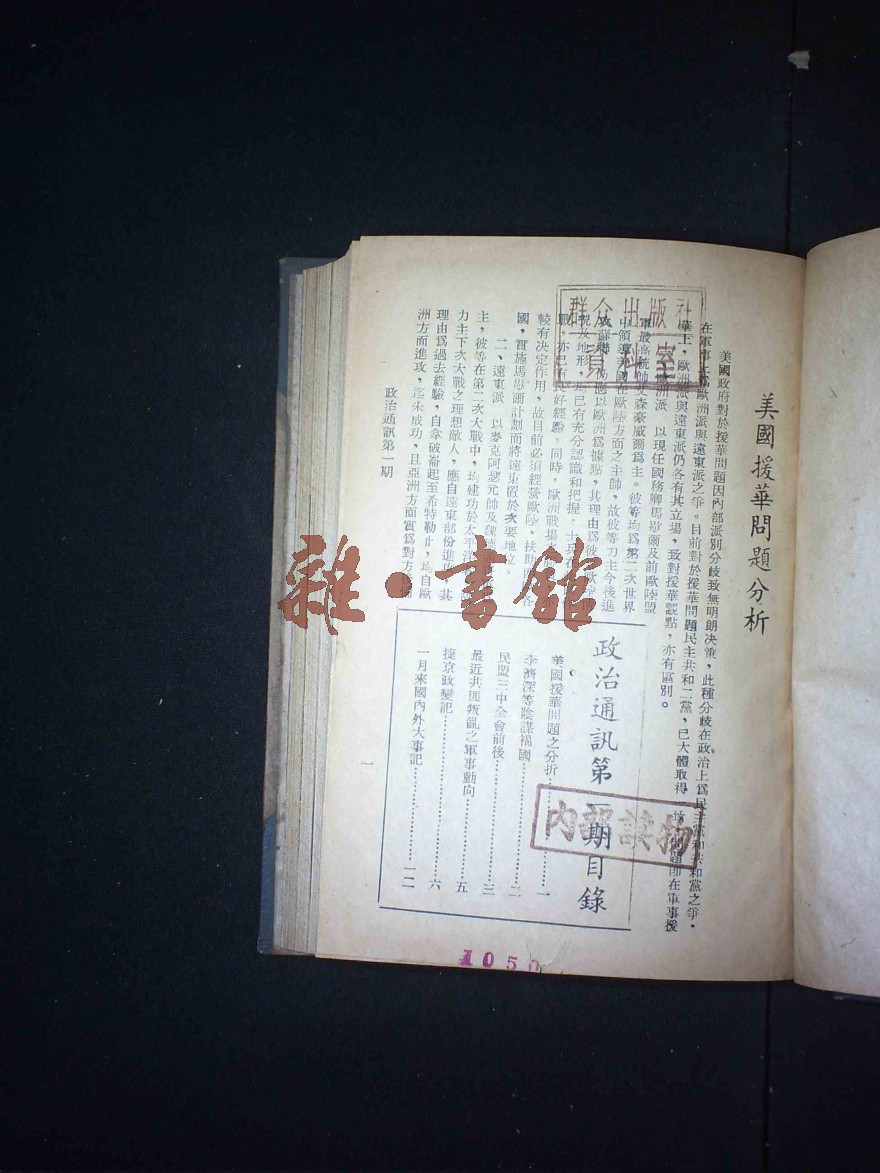 美國援華問題分析
美國政府對於援華問題因內部派別分歧致無明朗決策，此種分歧在政治上爲民主黨和共和黨之爭，
在軍事上爲歐洲派與遠東派之爭。目前對於援華問題民主共和二黨，已大體取得一致，問題卽在軍事援
華上，歐洲派與遠東派仍各有其立場，致對援華觀點，亦有區別。
歐洲派 以現任國務卿馬歇爾及前歐陸盟
軍最高統帥艾森豪威爾爲主。彼等均爲第二次世界
中領導美國在歐陸方面之主帥，故彼等力主今後進
攻蘇聯，仍應以歐洲爲據點，其理由爲彼
況及地形，均已有充分認識和把握，士兵
戰，亦已有良好經驗，同時，歐洲戰場
較有決定作用，故目前必須經營歐陸，扶助 各
國，實施馬歇爾計劃而將遠東置於次要地位。
二、遠東派 以麥克阿瑟元帥及
主，彼等在第二次大戰中，均建功於太平洋
力主下次大戰之理想敵人，應自遠東部份進 其
理由爲過去經驗，自拿破崙起至希特勒止，均自歐
洲方面進攻，迄未成功，且亞洲方面實爲對方
政治通訊第一期
政治通訊第一期目錄
美國援華問題之分折…………一
李濟深等陰謀禍國…………二
民盟三中全會前後…………三
最近共匪叛亂之軍事動向…………五
捷京政變記…………六
一月來國內外大事記…………一二
一
群众出版社
資料室
内部读物
1050
雜·書館